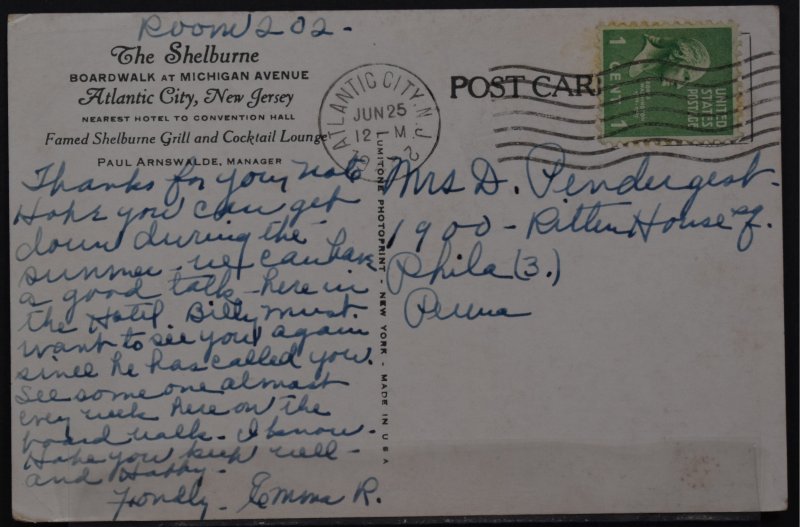 Room 202-
The Shelburne
BOARDWALK AT MICHIGAN AVENUE
Atlantic City, New Jersey
NEAREST HOTEL TO CONVENTION HALL
Famed Shelburne Grill and Cocktail Lounge
PAUL ARNSWALDE, MANAGER
Thanks for your note
Hope you can get
down during the
summer - we can have
a good talk - here in
the Hotel. Billy must
want to see you again
since he has called you.
See someone almost
every week here on the
board walk - I know.
Hope you keep well -
and Happy -
Fondly - Emma R.
LUMITONE PHOTOPRINT - NEW YORK - MADE IN U S A
ATLANTIC CITY, N.J.
JUN 25
12 M
POST CARD
1 CENT 1
UNITED
STATES
POSTAGE
Mrs D. Pendergast -
1900 - Ritten House Sq.
Phila (3.)
Penna